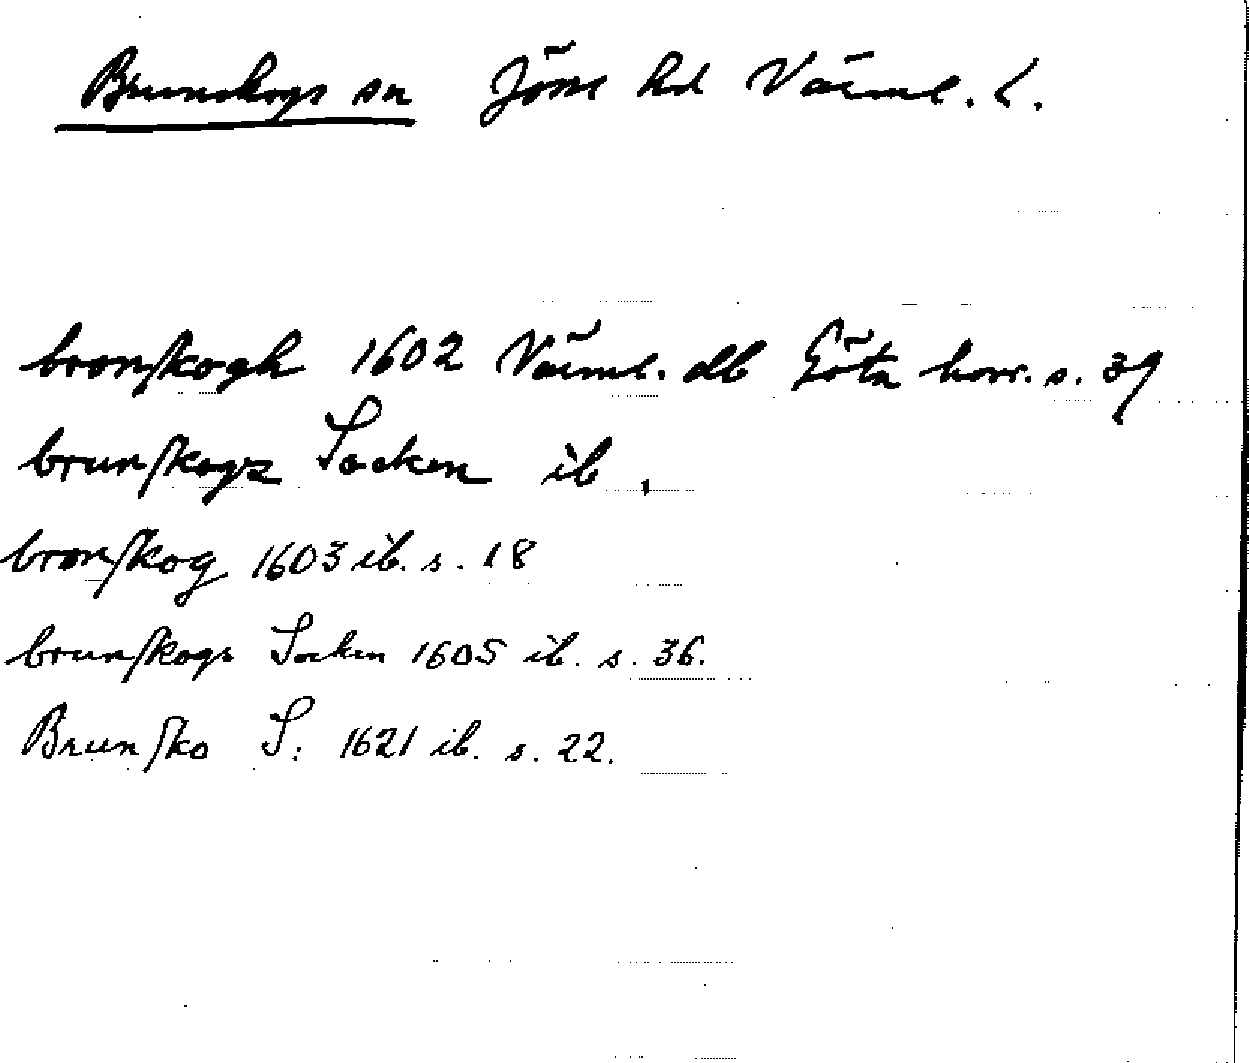 Brunskogs sn Jösse hd Värml. L.
bronſkogh 1602 Värml. db Göta hovr. s. 39
brunſkogz Socken ib.
bronſkog 1603 ib. s. 18
brunſkogs Socken 1605 ib. s. 36.
Brunſko S: 1621 ib. s. 22.